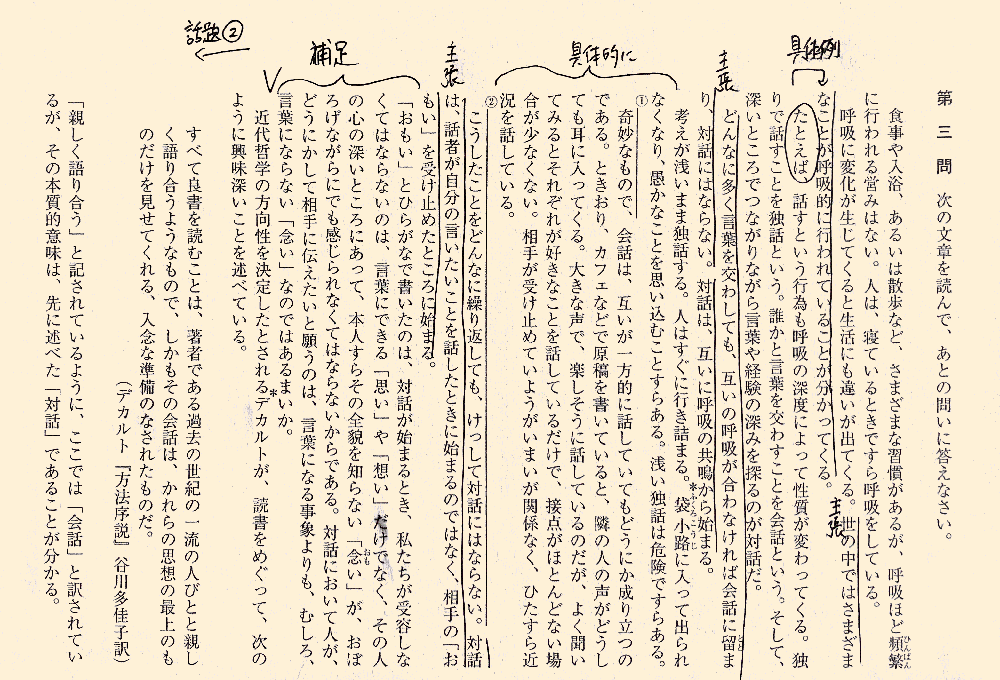 具体例
主張
具体的に
主張
補足
話題②
主張
第三問　次の文章を読んで、あとの問いに答えなさい。
食事や入浴、あるいは散歩など、さまざまな習慣があるが、呼吸ほど頻繁
ひんぱん
に行われる営みはない。人は、寝ているときですら呼吸をしている。
呼吸に変化が生じてくると生活にも違いが出てくる。世の中ではさまざま
なことが呼吸的に行われていることが分かってくる。
たとえば、話すという行為も呼吸の深度によって性質が変わってくる。独
りで話すことを独話という。誰かと言葉を交わすことを会話という。そして、
深いところでつながりながら言葉や経験の深みを探るのが対話だ。
どんなに多く言葉を交わしても、互いの呼吸が合わなければ会話に留ま
とど
り、対話にはならない。対話は、互いに呼吸の共鳴から始まる。
考えが浅いまま独話する。人はすぐに行き詰まる。*袋小路に入って出られ
ふくろこうじ
なくなり、愚かなことを思い込むことすらある。浅い独話は危険ですらある。
①奇妙なもので、会話は、互いが一方的に話していてもどうにか成り立つの
である。ときおり、カフェなどで原稿を書いていると、隣の人の声がどうし
ても耳に入ってくる。大きな声で、楽しそうに話しているのだが、よく聞い
てみるとそれぞれが好きなことを話しているだけで、接点がほとんどない場
合が少なくない。相手が受け止めていようがいまいが関係なく、ひたすら近
況を話している。
②こうしたことをどんなに繰り返しても、けっして対話にはならない。対話
は、話者が自分の言いたいことを話したときに始まるのではなく、相手の「お
もい」を受け止めたところに始まる。
「おもい」とひらがなで書いたのは、対話が始まるとき、私たちが受容しな
くてはならないのは、言葉にできる「思い」や「想い」だけでなく、その人
の心の深いところにあって、本人すらその全貌を知らない「念い」が、おぼ
おも
ろげながらにでも感じられなくてはならないからである。対話において人が、
どうにかして相手に伝えたいと願うのは、言葉になる事象よりも、むしろ、
言葉にならない「念い」なのではあるまいか。
近代哲学の方向性を決定したとされる*デカルトが、読書をめぐって、次の
ように興味深いことを述べている。
すべて良書を読むことは、著者である過去の世紀の一流の人びとと親し
く語り合うようなもので、しかもその会話は、かれらの思想の最上のも
のだけを見せてくれる、入念な準備のなされたものだ。
（デカルト『方法序説』谷川多佳子訳）
「親しく語り合う」と記されているように、ここでは「会話」と訳されてい
るが、その本質的意味は、先に述べた「対話」であることが分かる。